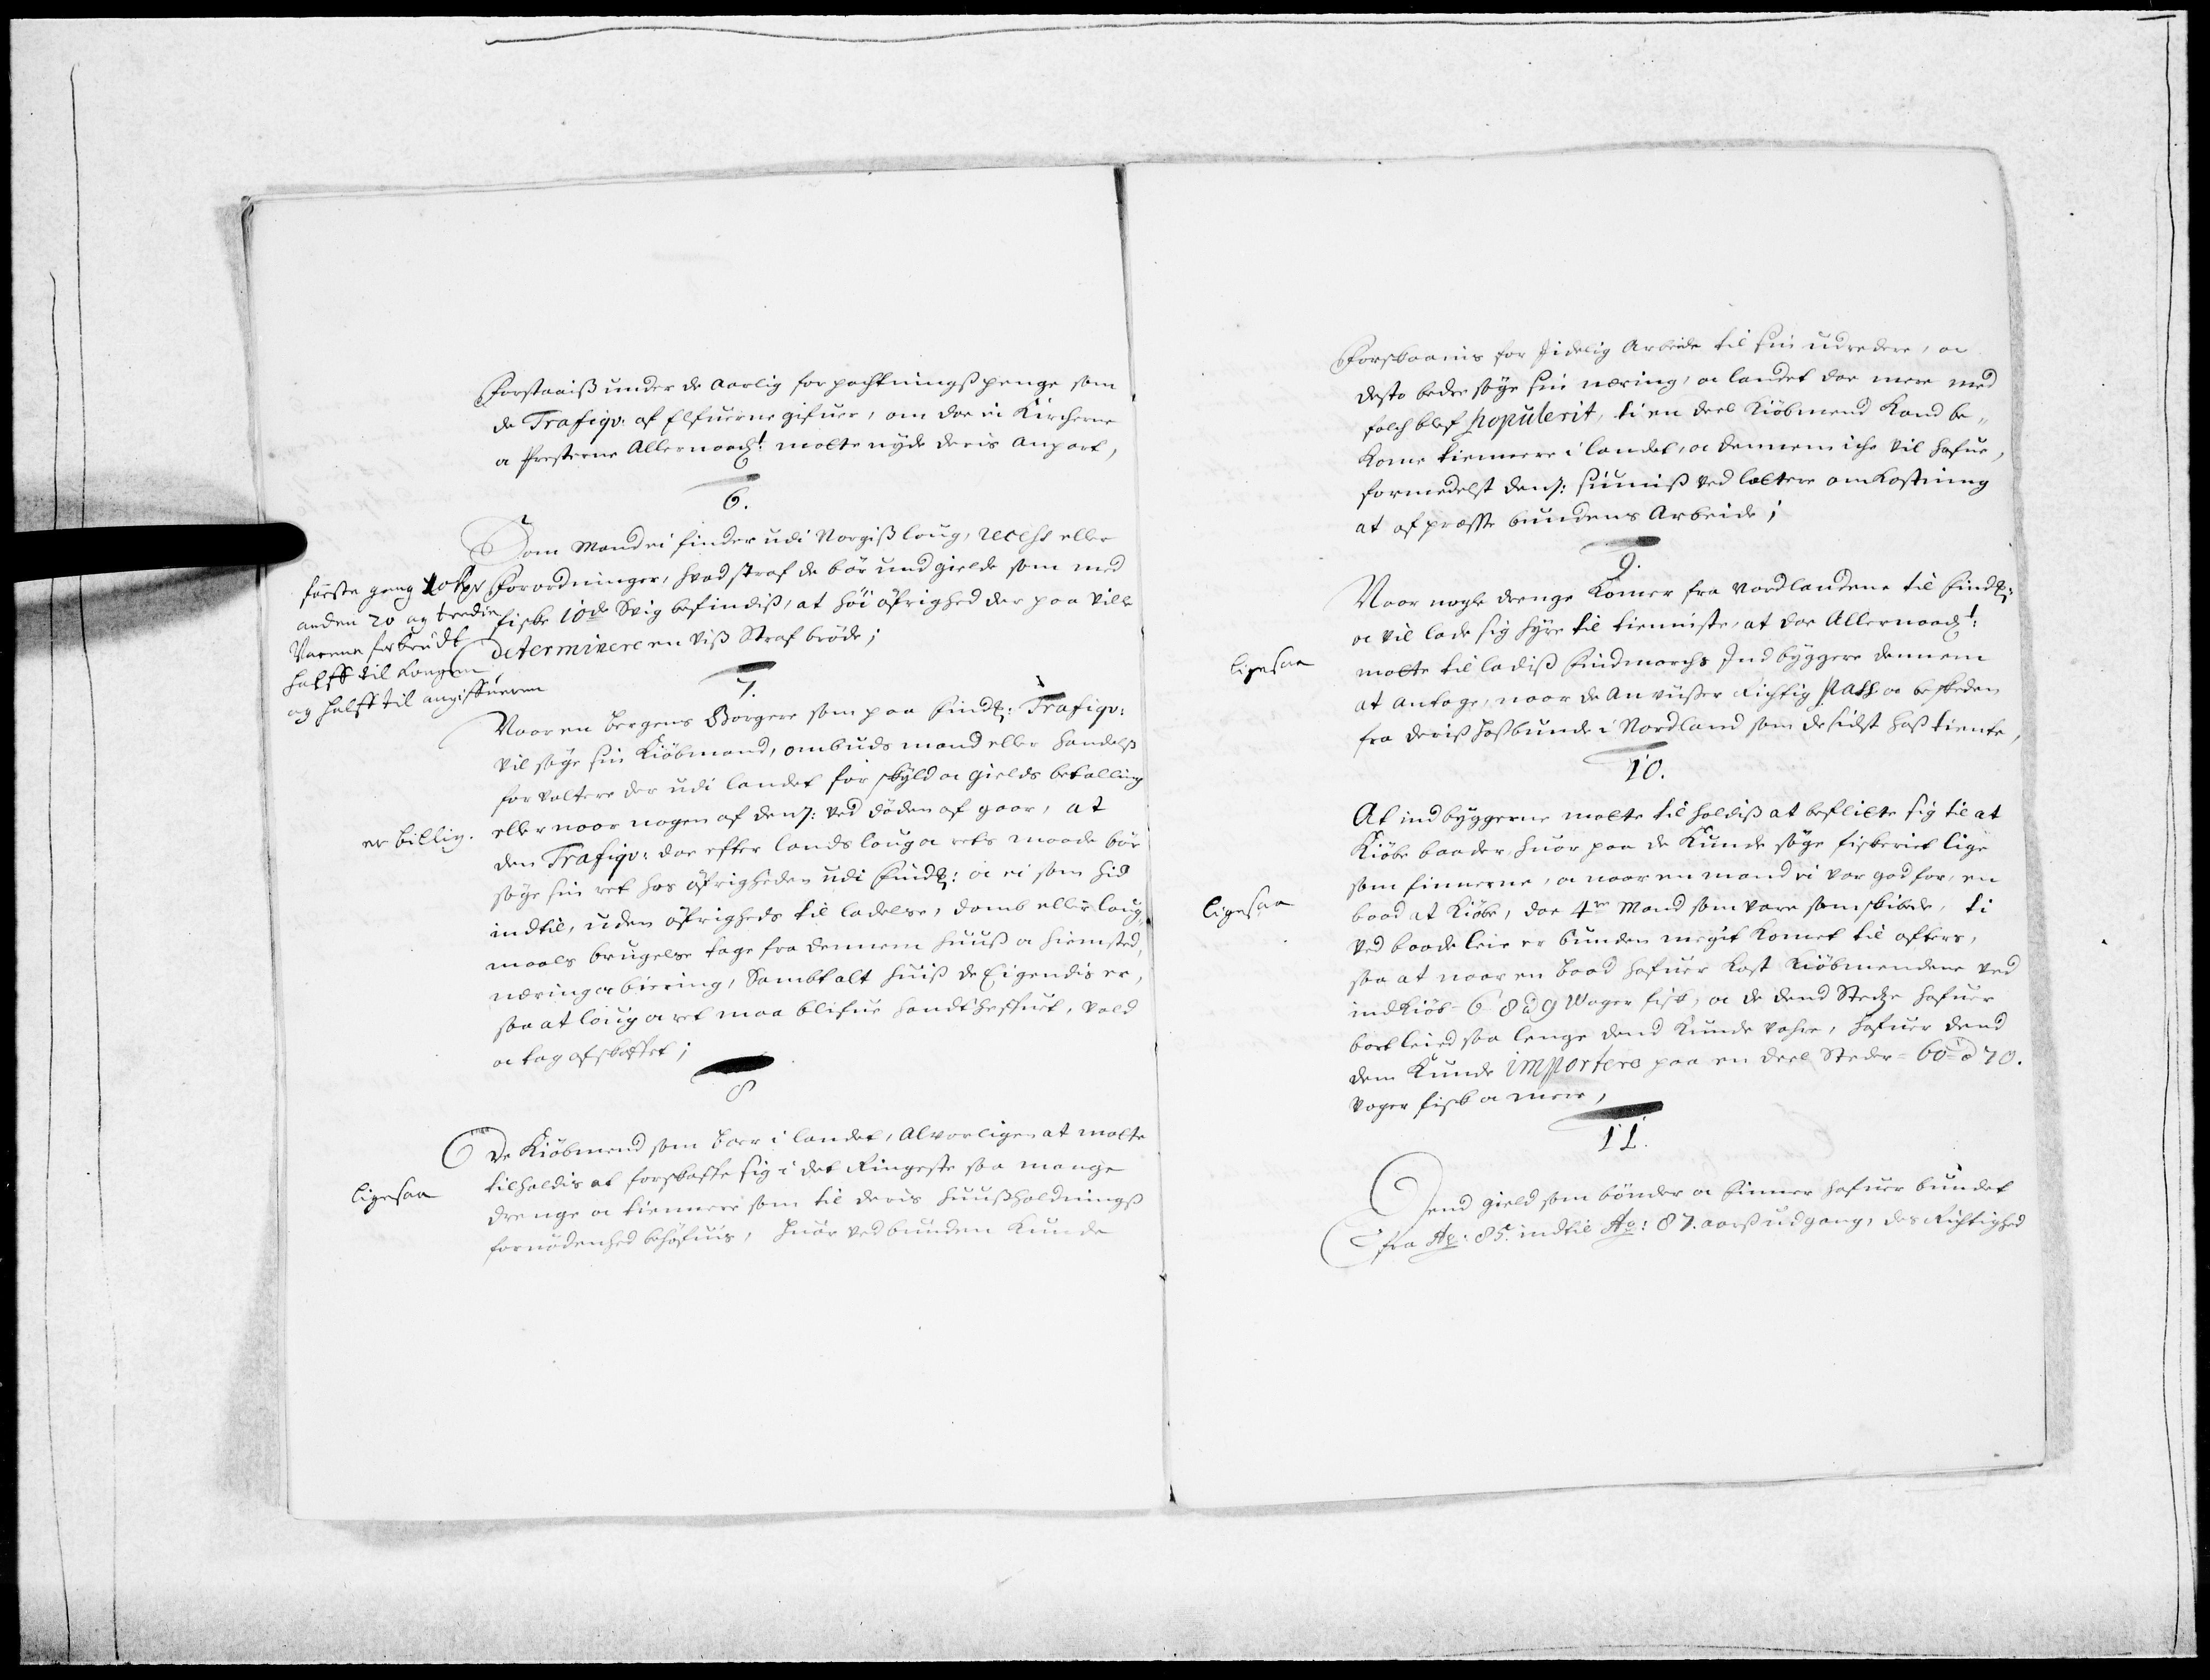 Forstaaiß under de aarlig forpachtningß penge som
de Trafiqv: af Elfuerne gifuer, om dae ei Kircherne
a Presterne Allernaad:t motte nyde deris anpart,
6.
Som Mand ei finder udi Norgiß loug, recess eller
Forordninger, hvad straf de bör und gielde som med
fiske 10de Svig befindiß, at höi öfrighed der paa ville
determinere en viß Straf bröde;
första gang 10 Rdr
anden 20 og tredie
Varene forbrudt
halff til Kongen
og halff til angiffueren
7.
Naar en bergens Borgere som paa Findm: Trafiqv:
vil söge sin Kiöbmand, ombuds mand eller handelß
forvaltere der udi landet for skyld a gields betalling
eller naar nogen af denß: ved döden af gaar, at
er billig.
den Trafiqv: dae efter lands loug a rets maade bör
söge sin ret hos öfrigheden udi Findm: a ei som hid
indtil, uden öfrigheds til ladelse, domb eller loug,
maals brugelse tage fra dennem huuß a hiemsted,
næring a biering, Sambt alt huiß de Eigendis er,
saa at loug a ret maa blifue handthefuet, vold
a tag afskaffet;
8
De Kiöbmend som boer i landet, Alvorligen at motte
tilholdis at forskaffe sig i det Ringeste saa mange
ligesaa
drenge a tiennere som til deris huußholdningß
fornödenhed behöfuis, huor ved bunden kunde
Forskaanis for Jidelig Arbeide til sin udredere, a
desto bedre söge sin næring, a landet dae mere med
folch blef populerit, ti en deel Kiöbmend Kand be,,
Kome tiennere i landet, a dennem iche vil hafue,
formedelst denß: siuniß ved lættere omkostning
at af præsse bundens Arbeide;
9.
Naar nogle drenge Komer fra Nordlandene til Findm:
a vil lade sig hyre til tienniste, at dae Allernaad:t
ligesaa
motte til ladiß Findmarchs Indbyggere dennem
at antage, naar de anviißer Richtig Pass a beskeden
fra deriß hosbunde i Nordland som de sidst hoß tiente,
10.
At indbyggerne motte til holdiß at beflitte sig til at
Kiöbe baader, huor paa de Kunde söge fiskeriet lige
som finnerne, a naar en mand ei var god for, en
ligesaa
baad at Kiöbe, dae 4re Mand som vare samskibede, ti
ved baade leie er bunden megit Komet til afters,
saa at naar en baad hafuer Kost Kiöbmendene ved
indkiöb = 6 8 a 9 Woger fisk, a de dend Stedze hafuer
bort leied saa lenge dend Kunde vahre, hafuer dend
dem Kunde importere paa en deel Steder = 60 = a 70.
voger fisk a mere,
11.
Dend gield som bönder a finner hafuer bundet
fra Ao: 85. indtil Ao: 87. aarß udgang, des Richtighed